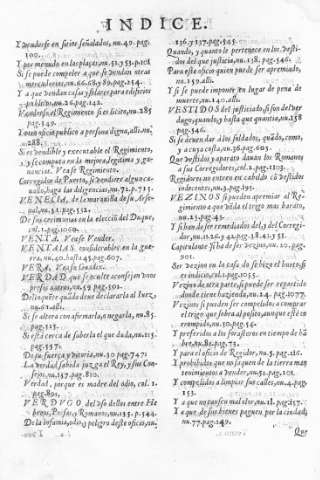 INDICE.
Y venderse en sitios señalados, nu. 49. pag.
100.
Y por menudo en las plaças, nu. 52. y 53. p. 101
Si se puede compeler a que se vendan otras
mercaderias, nu. 66. 68. y 89. pag. 254.
Y a que vendan casas y solares para edificios
publicos, nu. 26. pag. 142.
Venderse el Regimiento si es licito, nu. 285
pag. 149.
Y otro oficio publico a persona digna, alli, nu.
288.
Si es vendible y executable el Regimiento,
y si se computa en la mejora, legitima y ga-
nancias. Vease Regimiento.
Corregidor de Puerto, si vendiere alguna co-
sa, haga las diligencias, nu. 72. p. 715.
VENECIA, de la maravilla de su Arse-
nal, nu. 51. pag. 552.
De sus cerimonias en la eleccion del Duque,
col. 1. pag. 1060.
VENTA. Vease Vender.
VENTAJAS considerables en la gue-
rra, nu. 40. hasta 45. pag. 607.
VERA, Vease Condes.
VERDAD que se oculte aconsejan
presos autores, nu. 59. pag. 501.
Delinquente quãdo deve declararla al Iuez,
nu. 61. alli.
Si se altera con afirmarla, o negarla, nu. 85
pag. 513.
Si està cerca de saberla el que duda, nu. 115.
pag. 537.
De su fuerça y vitoria, nu. 30. pag. 747
La verdad sabida juzga el Rey, y sus Con-
sejo, nu. 137. pag. 810.
Verdad, porque es madre del odio, col. 1.
pag. 891.
VERDVGO del uso dellos entre He-
breos, Persas, y Romanos, nu. 135. p. 544.
De la infamia, odio, y peligro deste oficio, nu.
136. y 137. pag. 545.
Quando, y quanto le pertenece en los vesti-
dos del que justicia, nu. 158. pag. 546.
Para este oficio quien puede ser apremiado,
nu. 139. alli.
Y si se puede imponer en lugar de pena de
muerte, nu. 140. alli.
VESTIDOS del justiciado, si son del ver-
dugo, quando, y hasta que quantia, nu. 138
pag. 546.
Si se deven dar à los soldados, quãdo, como,
y a cuya costa, nu. 36. pag. 605.
Que vestidos y aparato davan los Romanos
a sus Corregidores, col. 2. pag. 1113.
Regidores no entren en cabildo cõ vestidos
indecentes, nu. 3. pag. 195.
VEZINOS si pueden apremiar al Re-
gimiento a que vēda el trigo mas barato,
nu. 25. pag. 43.
Y si han de ser remediados del, y del Corregi-
dor, nu. 16. hasta 42. pag. 41. y 255. alli.
Capirulante si ha de ser vezino, nu. 10. pag.
901.
Ser vezino en la casa do se hizo el hurto, si
es indicio, col. 1. pag. 1055.
Vezino de otra parte, si puede ser repartido
donde tiene hazienda, nu. 24. pag. 1077.
Vezinos si pueden ser compelidos a comprar
el trigo que sobra al posito, aunque estè co-
rrompido, nu. 50. pag. 54.
Y preferidos a los forasteros en tiempo de hã-
bre, nu. 81. pag. 73.
Y para el oficio de Regidor, nu. 5. pag. 116.
Y prohibidos que no saquen de la tierra man-
tenimientos a vender, nu. 51. pag. 101.
Y compelidos a limpiar sus calles, nu. 4. pag.
153.
Y a que no tañan mal olor, nu. 21. pag. 257.
Y a que de sus bienes paguen por la ciudad,
nu. 77. pag. 249.
Que